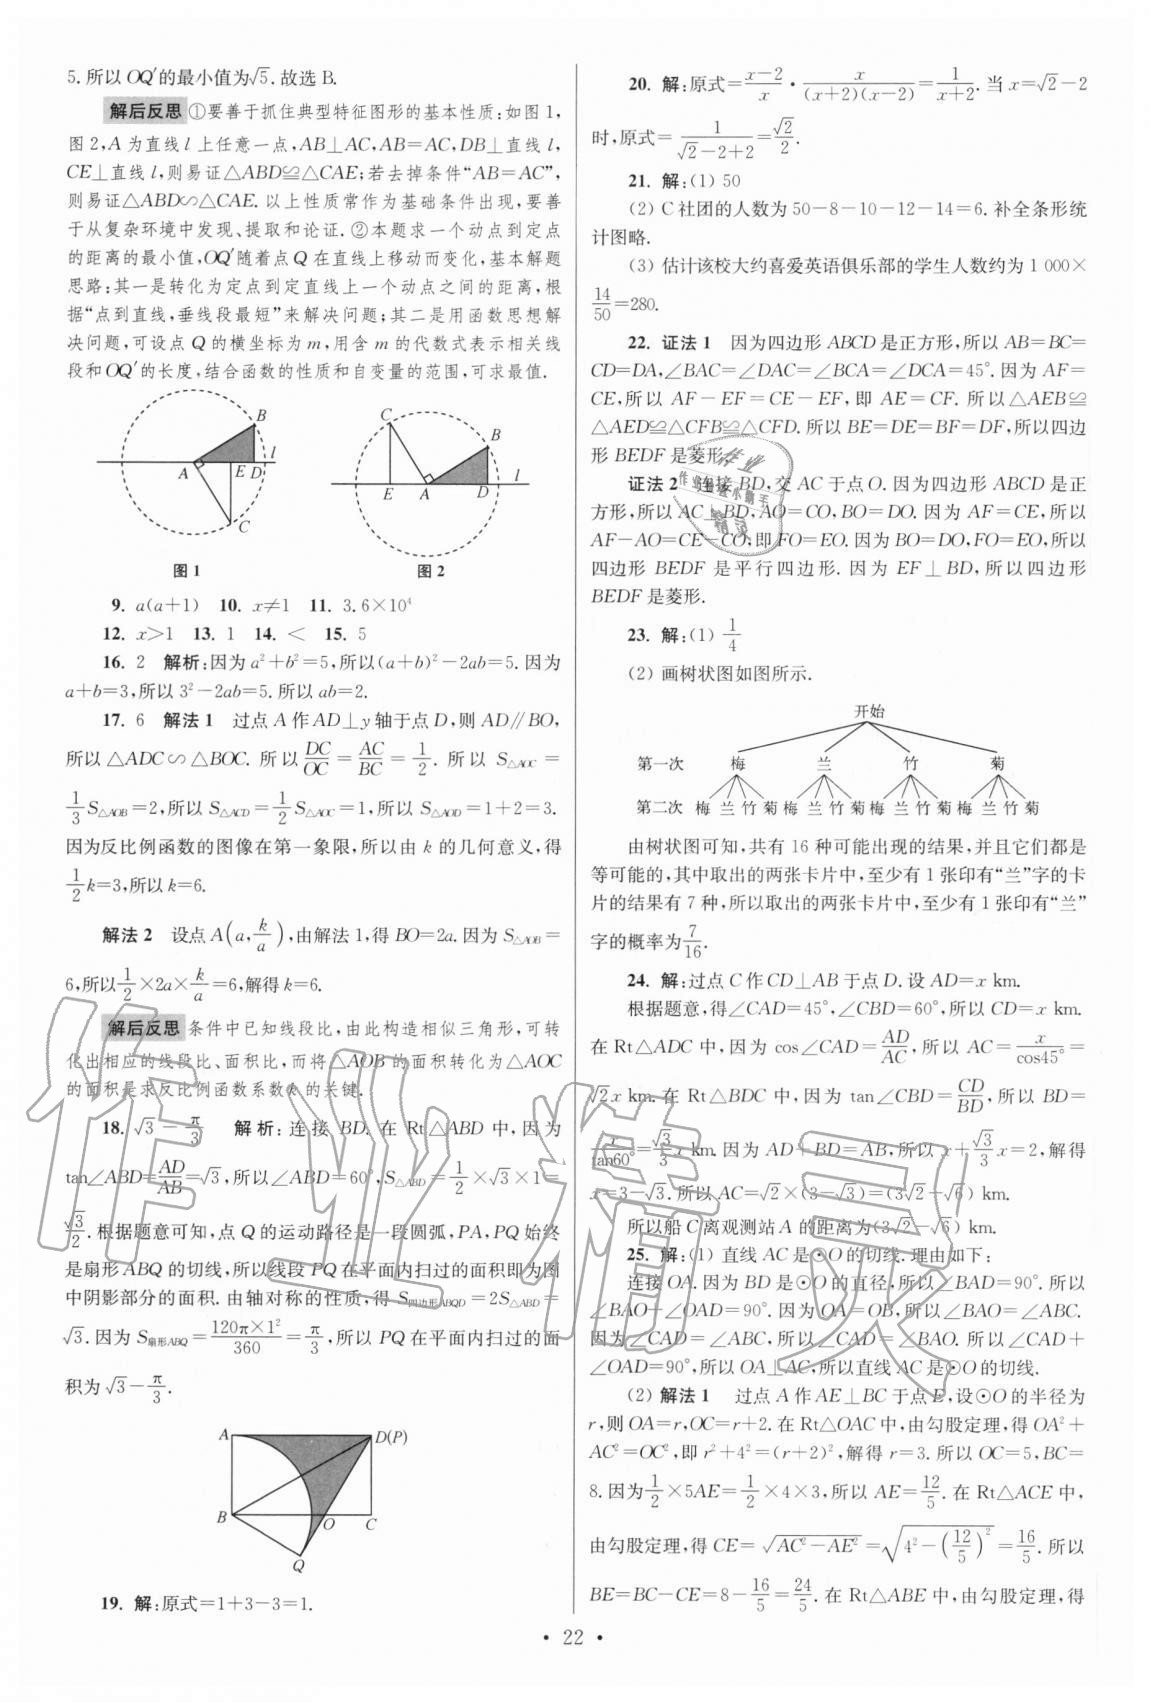 5.所以OQ′的最小值为√5.故选B.
解后反思 ①要善于抓住典型特征图形的基本性质:如图1,
图2,A为直线l上任意一点,AB⊥AC,AB=AC,DB⊥直线l,
CE⊥直线l,则易证△ABD≌△CAE;若去掉条件“AB=AC”,
则易证△ABD∽△CAE.以上性质常作为基础条件出现,要善
于从复杂环境中发现、提取和论证.②本题求一个动点到定点
的距离的最小值,OQ′随着点Q在直线上移动而变化,基本解题
思路:其一是转化为定点到定直线上一个动点之间的距离,根
据“点到直线,垂线段最短”来解决问题;其二是用函数思想解
决问题,可设点Q的横坐标为m,用含m的代数式表示相关线
段和OQ′的长度,结合函数的性质和自变量的范围,可求最值.
B
A E D l
C
图1
C
B
E A D l
图2
9. a(a+1) 10. x≠1 11. 3.6×10⁴
12. x>1 13. 1 14. < 15. 5
16. 2 解析:因为a²+b²=5,所以(a+b)²-2ab=5.因为
a+b=3,所以3²-2ab=5.所以ab=2.
17. 6 解法1 过点A作AD⊥y轴于点D,则AD∥BO,
所以△ADC∽△BOC.所以DC/OC=AC/BC=1/2.所以S△AOC=
1/3S△AOB=2,所以S△ACD=1/2S△AOC=1,所以S△AOD=1+2=3.
因为反比例函数的图像在第一象限,所以由k的几何意义,得
1/2k=3,所以k=6.
解法2 设点A(a,k/a),由解法1,得BO=2a.因为S△AOB=
6,所以1/2×2a×k/a=6,解得k=6.
解后反思 条件中已知线段比,由此构造相似三角形,可转
化出相应的线段比、面积比,而将△AOB的面积转化为△AOC
的面积是求反比例函数系数k的关键.
18. √3-π/3 解析:连接BD.在Rt△ABD中,因为
tan∠ABD=AD/AB=√3,所以∠ABD=60°,S△ABD=1/2×√3×1=
√3/2.根据题意可知,点Q的运动路径是一段圆弧,PA,PQ始终
是扇形ABQ的切线,所以线段PQ在平面内扫过的面积即为图
中阴影部分的面积.由轴对称的性质,得S四边形ABQD=2S△ABD=
√3.因为S扇形ABQ=120π×1²/360=π/3,所以PQ在平面内扫过的面
积为√3-π/3.
A D(P)
B O C
Q
19. 解:原式=1+3-3=1.
20. 解:原式=x-2/x·x/(x+2)(x-2)=1/x+2.当x=√2-2
时,原式=1/√2-2+2=√2/2.
21. 解:(1) 50
(2) C社团的人数为50-8-10-12-14=6.补全条形统
计图略.
(3) 估计该校大约喜爱英语俱乐部的学生人数约为1 000×
14/50=280.
22. 证法1 因为四边形ABCD是正方形,所以AB=BC=
CD=DA,∠BAC=∠DAC=∠BCA=∠DCA=45°.因为AF=
CE,所以AF-EF=CE-EF,即AE=CF.所以△AEB≌
△AED≌△CFB≌△CFD.所以BE=DE=BF=DF,所以四边
形BEDF是菱形.
证法2 连接BD,交AC于点O.因为四边形ABCD是正
方形,所以AC⊥BD,AO=CO,BO=DO.因为AF=CE,所以
AF-AO=CE-CO,即FO=EO.因为BO=DO,FO=EO,所以
四边形BEDF是平行四边形.因为EF⊥BD,所以四边形
BEDF是菱形.
23. 解:(1) 1/4
(2) 画树状图如图所示.
开始
第一次 梅 兰 竹 菊
第二次 梅 兰 竹 菊 梅 兰 竹 菊 梅 兰 竹 菊 梅 兰 竹 菊
由树状图可知,共有16种可能出现的结果,并且它们都是
等可能的,其中取出的两张卡片中,至少有1张印有“兰”字的卡
片的结果有7种,所以取出的两张卡片中,至少有1张印有“兰”
字的概率为7/16.
24. 解:过点C作CD⊥AB于点D.设AD=x km.
根据题意,得∠CAD=45°,∠CBD=60°,所以CD=x km.
在Rt△ADC中,因为cos∠CAD=AD/AC,所以AC=x/cos45°=
√2x km.在Rt△BDC中,因为tan∠CBD=CD/BD,所以BD=
x/tan60°=√3/3x km.因为AD+BD=AB,所以x+√3/3x=2,解得
x=3-√3.所以AC=√2×(3-√3)=(3√2-√6) km.
所以船C离观测站A的距离为(3√2-√6) km.
25. 解:(1) 直线AC是⊙O的切线.理由如下:
连接OA.因为BD是⊙O的直径,所以∠BAD=90°.所以
∠BAO+∠OAD=90°.因为OA=OB,所以∠BAO=∠ABC.
因为∠CAD=∠ABC,所以∠CAD=∠BAO.所以∠CAD+
∠OAD=90°,所以OA⊥AC,所以直线AC是⊙O的切线.
(2) 解法1 过点A作AE⊥BC于点E,设⊙O的半径为
r,则OA=r,OC=r+2.在Rt△OAC中,由勾股定理,得OA²+
AC²=OC²,即r²+4²=(r+2)²,解得r=3.所以OC=5,BC=
8.因为1/2×5AE=1/2×4×3,所以AE=12/5.在Rt△ACE中,
由勾股定理,得CE=√AC²-AE²=√4²-(12/5)²=16/5.所以
BE=BC-CE=8-16/5=24/5.在Rt△ABE中,由勾股定理,得
• 22 •
作业精灵